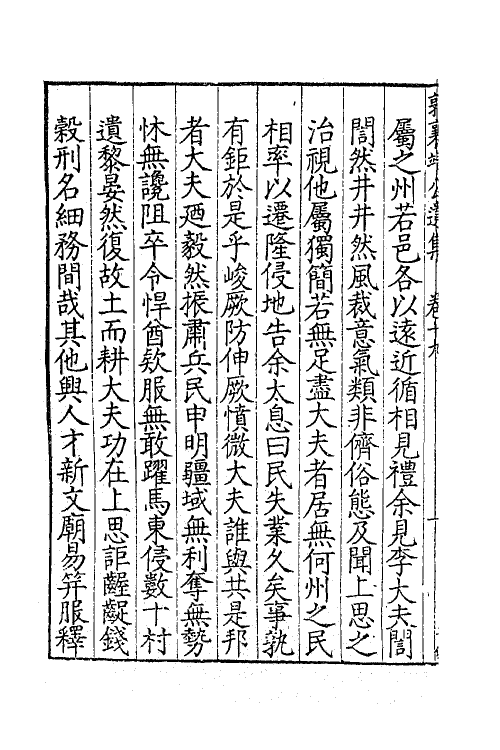 屬之州若邑各以遠近循相見禮余見李大夫誾
誾然井井然風裁意氣類非儕俗態及聞上思之
治視他屬獨簡若無足盡大夫者居無何州之民
相率以遷隆侵地告余太息曰民失業久矣事孰
有鉅於是乎峻厥防伸厥憤微大夫誰與其是邦
者大夫廼毅然振肅兵民申明疆域無利奪無勢
怵無讒阻卒令悍酋欵服無敢躍馬東侵數十村
遺黎晏然復故土而耕大夫功在上思詎齷齪錢
穀刑名細務間哉其他興人才新文廟易笄服釋
郭襄靖公遺集 卷十九